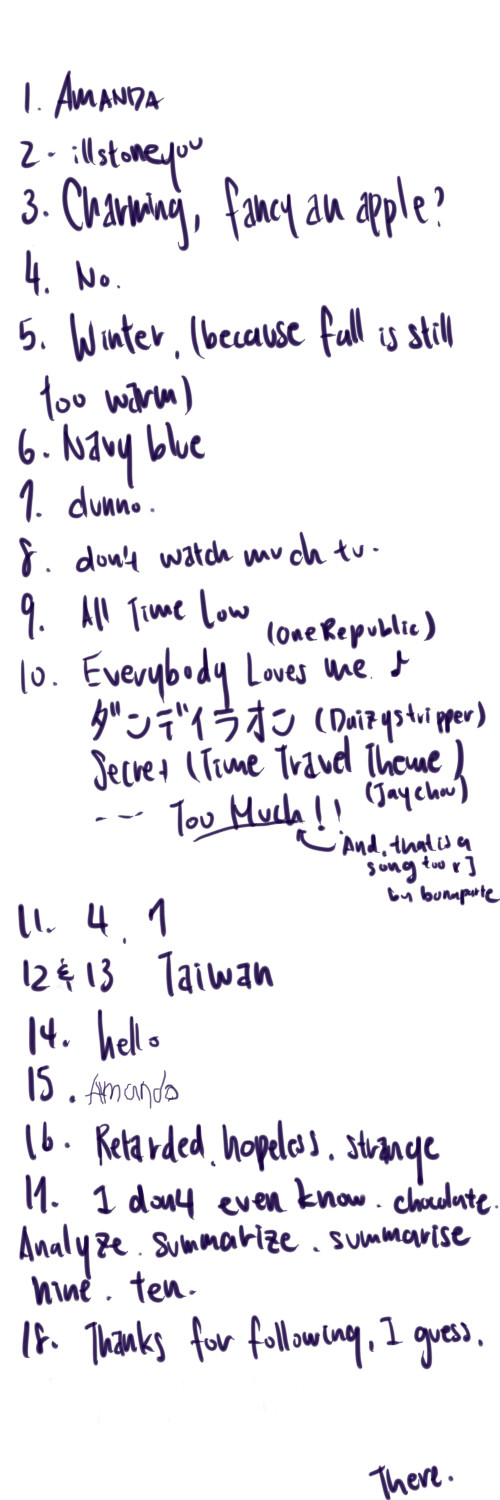 1. AMANDA
2 - illstoneyou
3. Charming, fancy an apple?
4. No.
5. Winter. (because fall is still
too warm)
6. Navy blue
7. dunno.
8. don't watch much tv.
9. All Time Low
(OneRepublic)
10. Everybody Loves me ♪
ダンデイラオン (Daizystripper)
Secret (Time Travel Theme)
(Jay chou)
--- Too Much!!
And. that is a
song too r]
by bonaparte
11. 4. 7
12 & 13 Taiwan
14. hello
15. Amanda
16. Retarded. hopeless. strange
17. I don't even know. chocolate.
Analyze. summarize. summarise
nine. ten.
18. Thanks for following, I guess.
There.